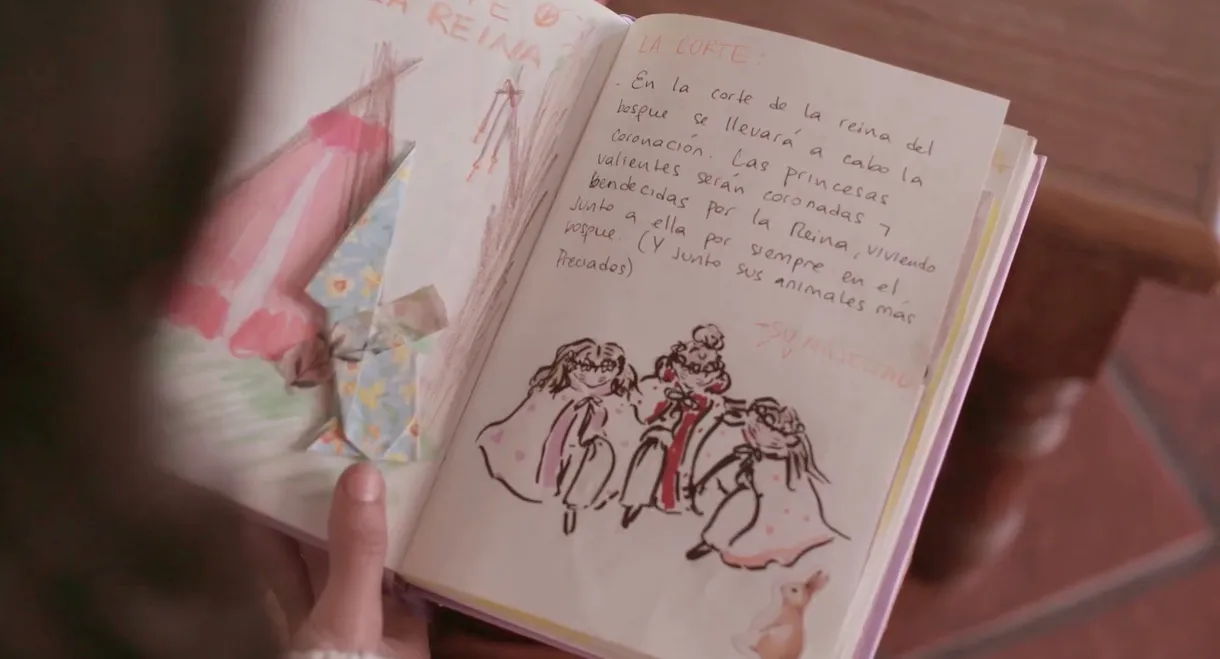 LA REINA
LA CORTE:
- En la corte de la reina del
bosque se llevará a cabo la
coronación. Las princesas
valientes serán coronadas y
bendecidas por la Reina, viviendo
junto a ella por siempre en el
bosque. (Y junto sus animales más
Preciados)
-SU MAJESTAD